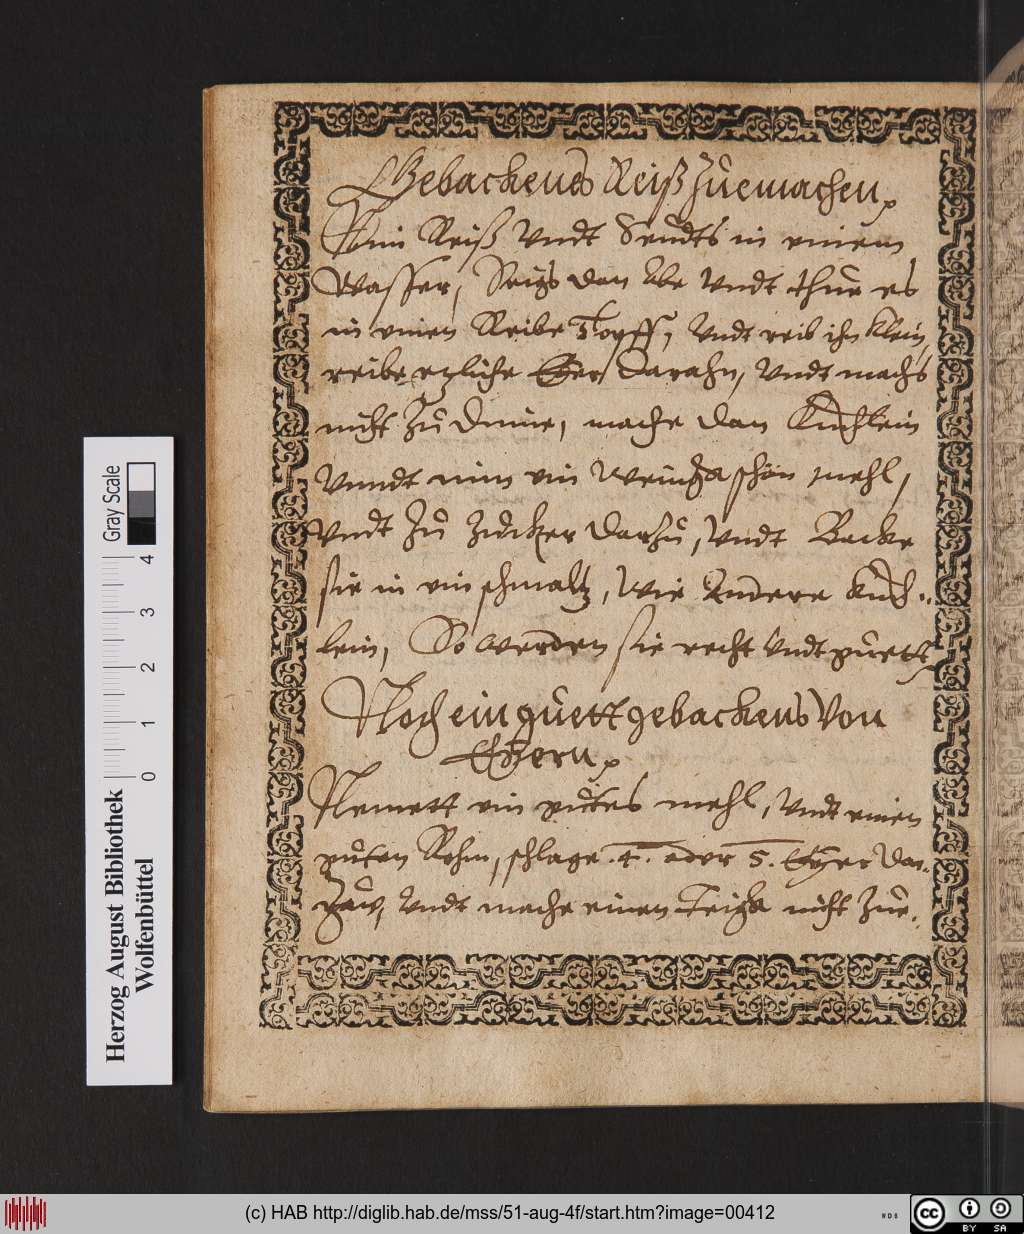 Gebackenes Reiß Zuemachen
Nim Reiß Vndt Seudts in einem
Wasser, Seigs dan Abe Vndt thue es
in einen Reibe Topff, Vndt reib ihn klein,
reibe etzliche Eÿer darahn, Vndt machs
nicht Zu dünne, mache dan küchlein
Vnndt nim ein wenigk schön mehl,
Vndt Zucker darzu, Vndt Backe
sie in ein schmaltz, Wie Andere küch..
lein, So werden sie recht Vndt guett
Noch ein guett gebackens Von
Eÿern
Nemett ein gutes mehl, Vndt einen
guten Rohm, schlage .4. oder 5. Eÿer dar..
Vndt mache einen Teigk nicht Zue..
Herzog August Bibliothek
Wolfenbüttel
Gray Scale
0 1 2 3 4
(c) HAB http://diglib.hab.de/mss/51-aug-4f/start.htm?image=00412
WDB
cc BY SA